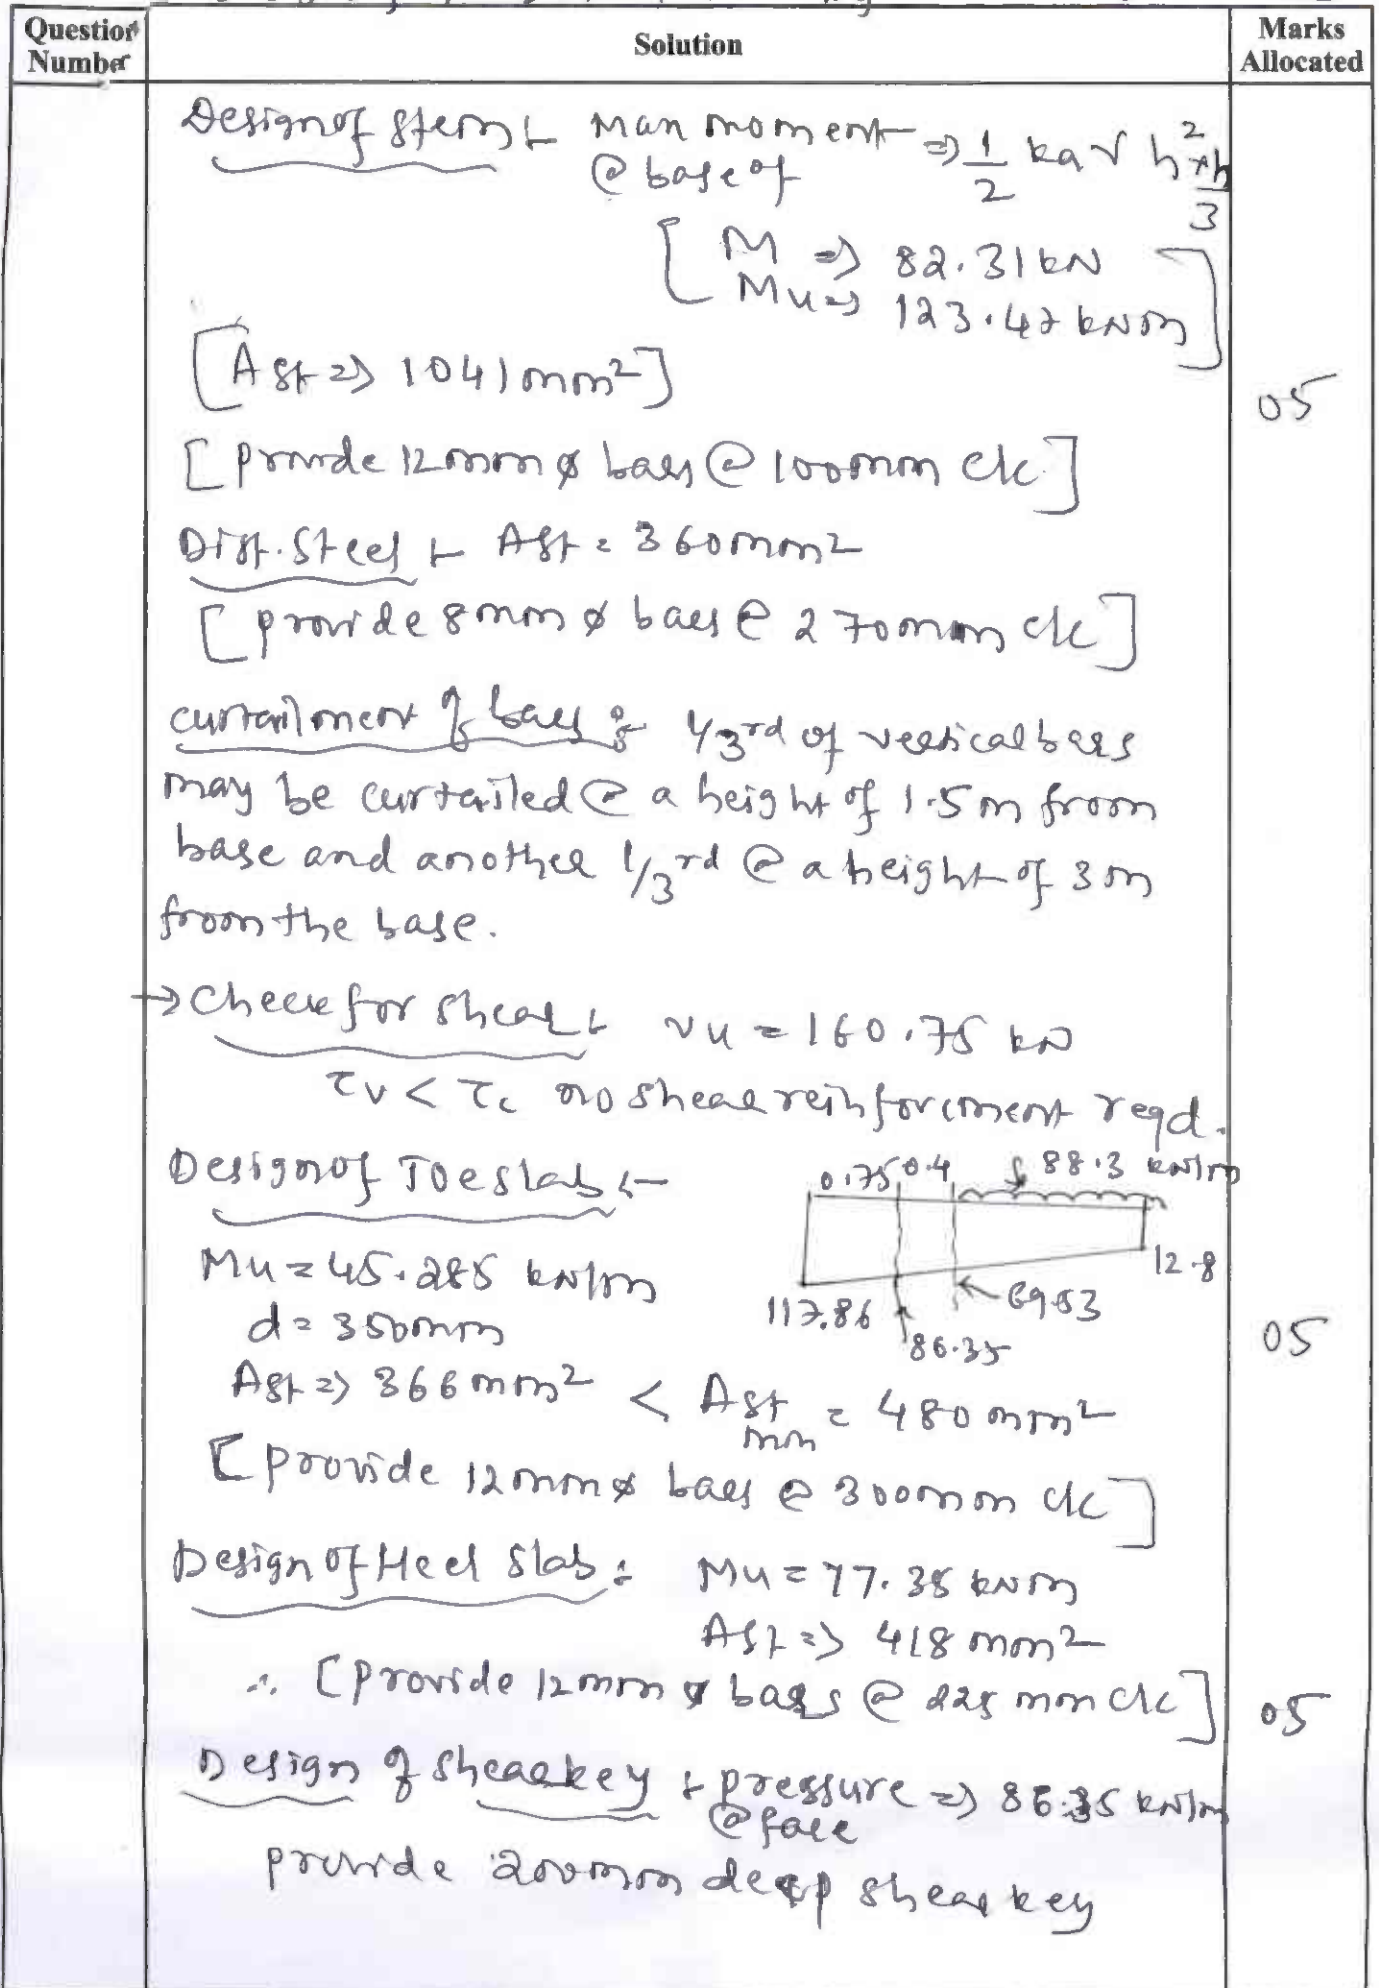 Question Number
Solution
Marks Allocated
Design of stem :- Max moment @ base of => 1/2 ka γ h² × h/3
[ M => 82.31 kN
Mu => 123.47 kNm ]
[ Ast => 1041 mm² ]
05
[ provide 12mm ø bars @ 100mm c/c ]
Dist. Steel :- Ast = 360mm²
[ provide 8mm ø bars @ 270mm c/c ]
curtailment of bars : 1/3rd of vertical bars
may be curtailed @ a height of 1.5m from
base and another 1/3rd @ a height of 3m
from the base.
→ Check for shear :- Vu = 160.75 kN
τv < τc no shear reinforcement reqd.
Design of Toe slab :-
0.75 0.4 88.3 kN/m
Mu = 45.285 kN/m
12.8
117.86 69.53
d = 350mm
86.35
05
Ast => 366mm² < Ast min = 480mm²
[ provide 12mm ø bars @ 300mm c/c ]
Design of Heel slab : Mu = 77.35 kNm
Ast => 418 mm²
∴ [ Provide 12mm ø bars @ 225 mm c/c ]
05
Design of shear key :- pressure @ face => 86.35 kN/m
provide 200mm deep shear key